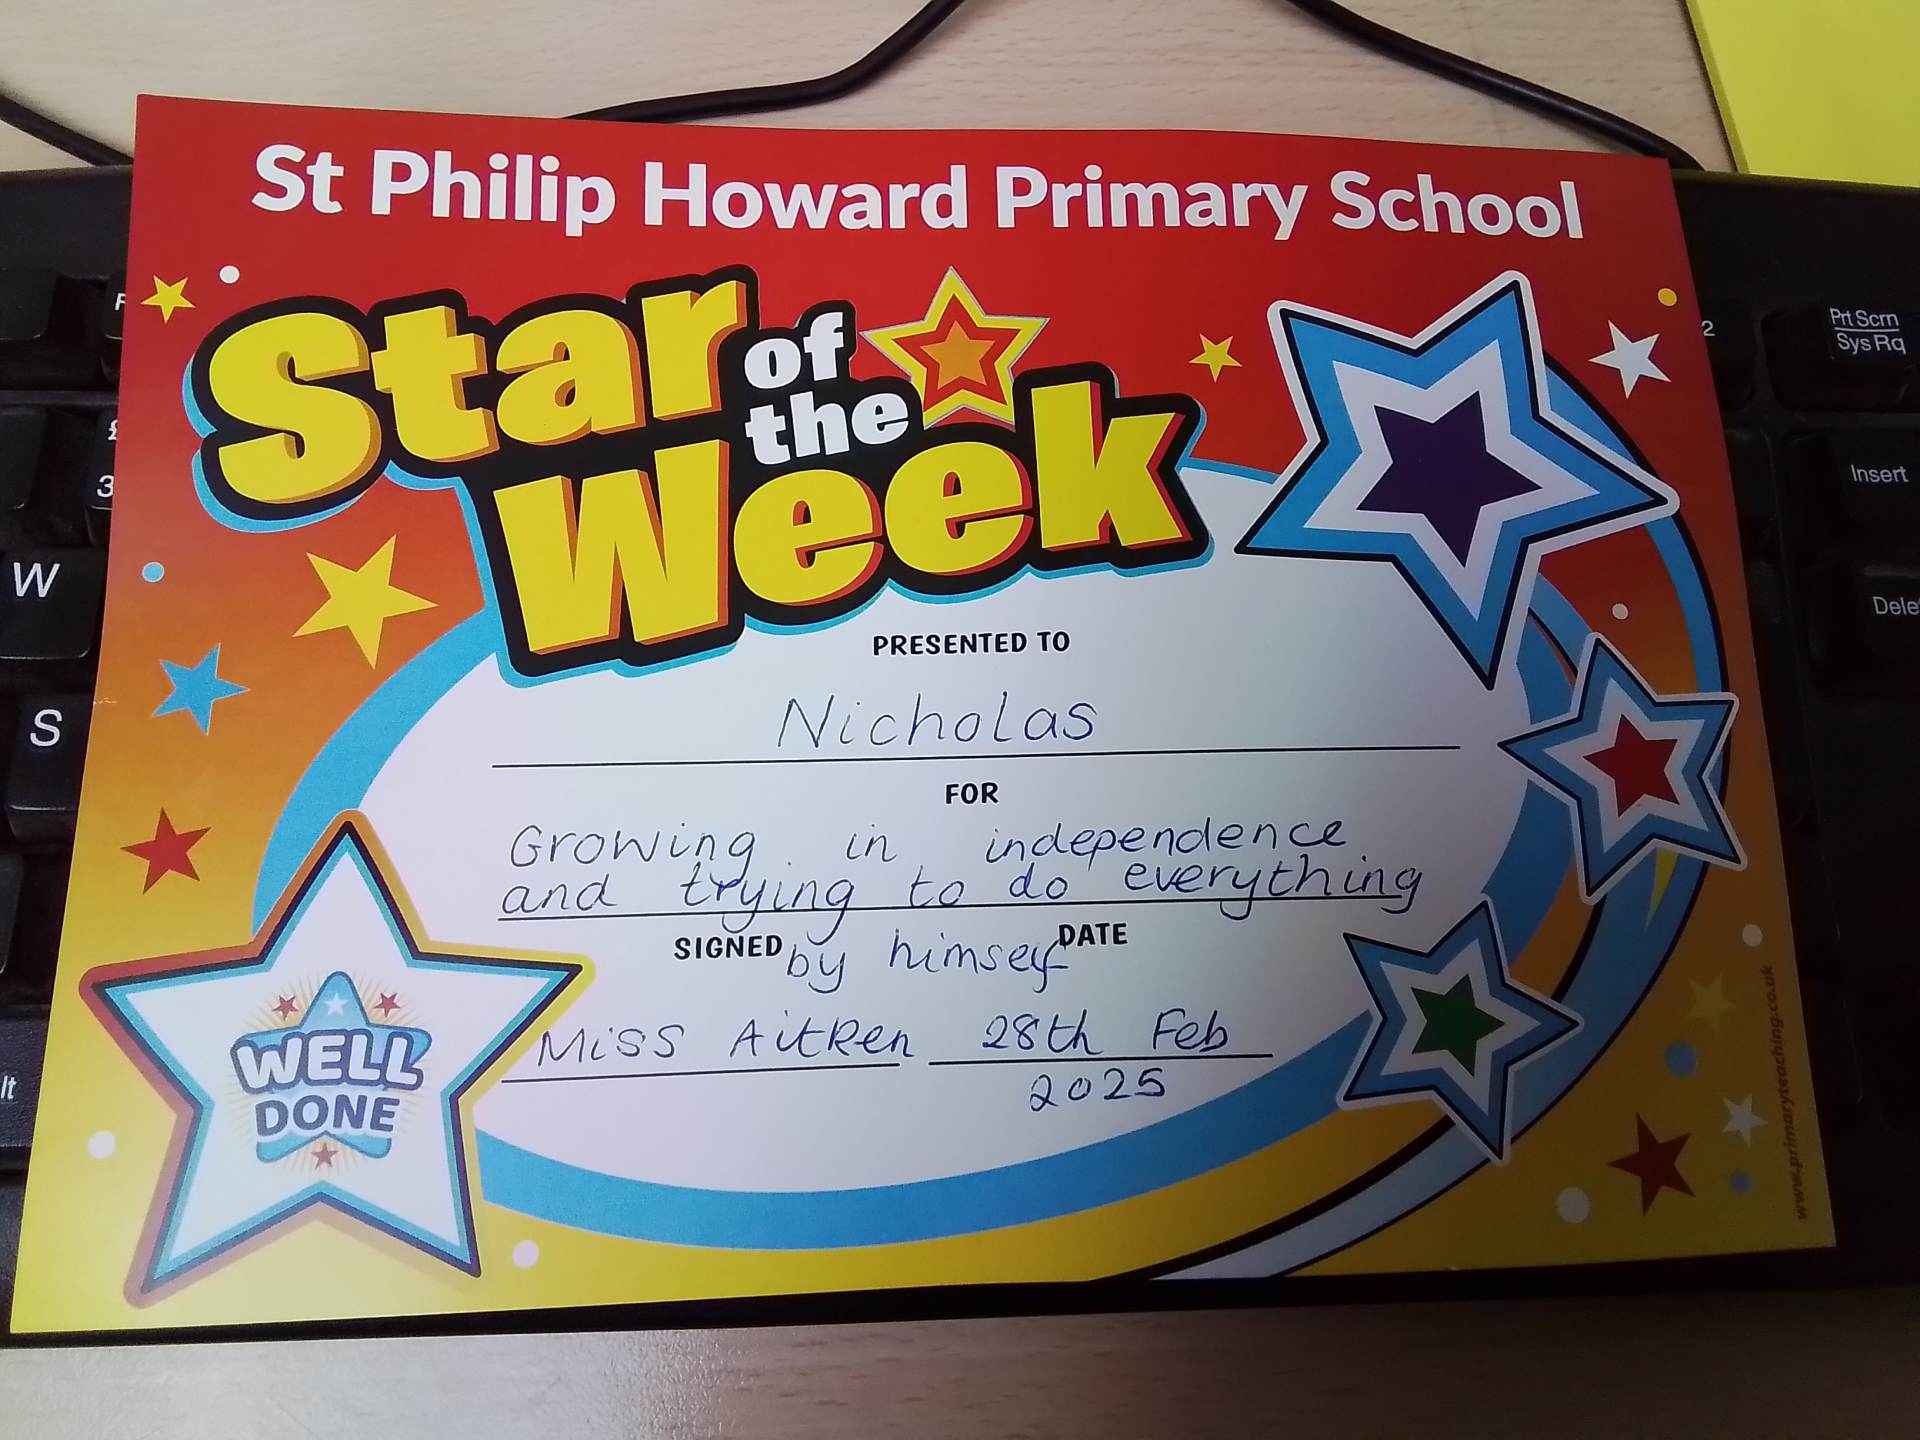 St Philip Howard Primary School
Star of the Week
PRESENTED TO
Nicholas
FOR
Growing in independence
and trying to do everything
by himself
SIGNED
DATE
Miss Aitken
28th Feb
2025
WELL
DONE
www.primaryteaching.co.uk
Prt Scrn
Sys Rq
Insert
W
S
3
2